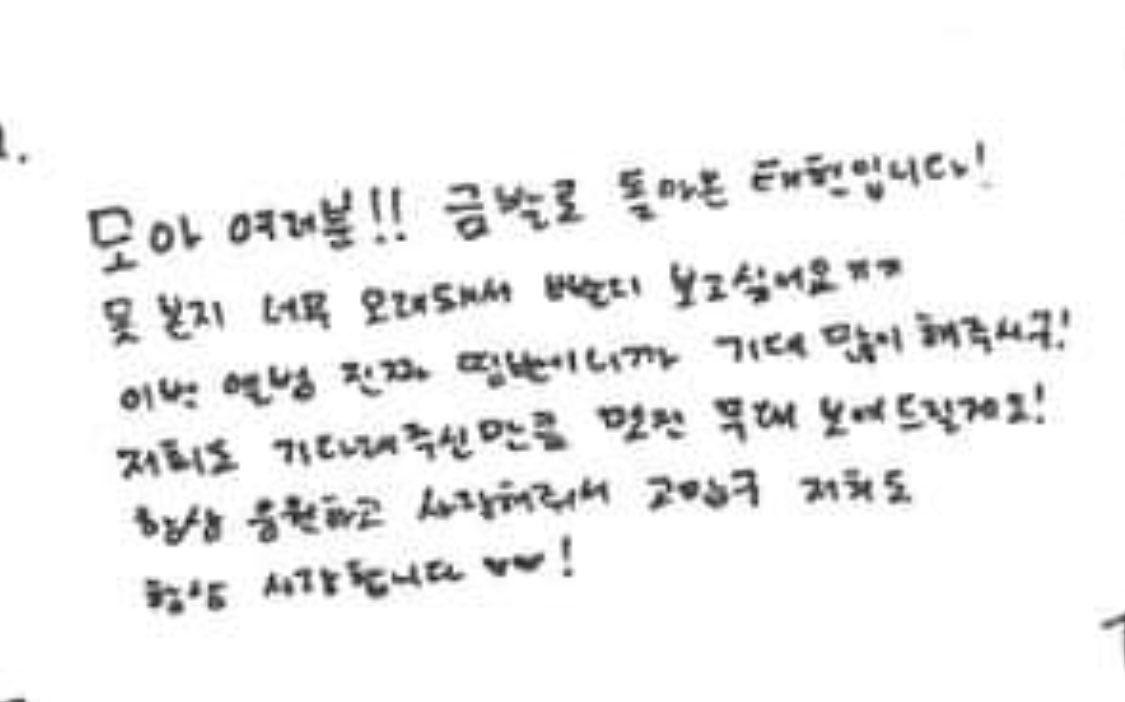 모아 여러분!! 금발로 돌아온 태현입니다!
못 본지 너무 오래돼서 빨리 보고싶어요ㅠㅠ
이번 앨범 진짜 띵반이니까 기대 많이 해주시구!
저희도 기다려주신만큼 멋진 무대 보여드릴게요!
항상 응원하고 사랑해줘서 고맙구 저희도
항상 사랑합니다 ♥♥!